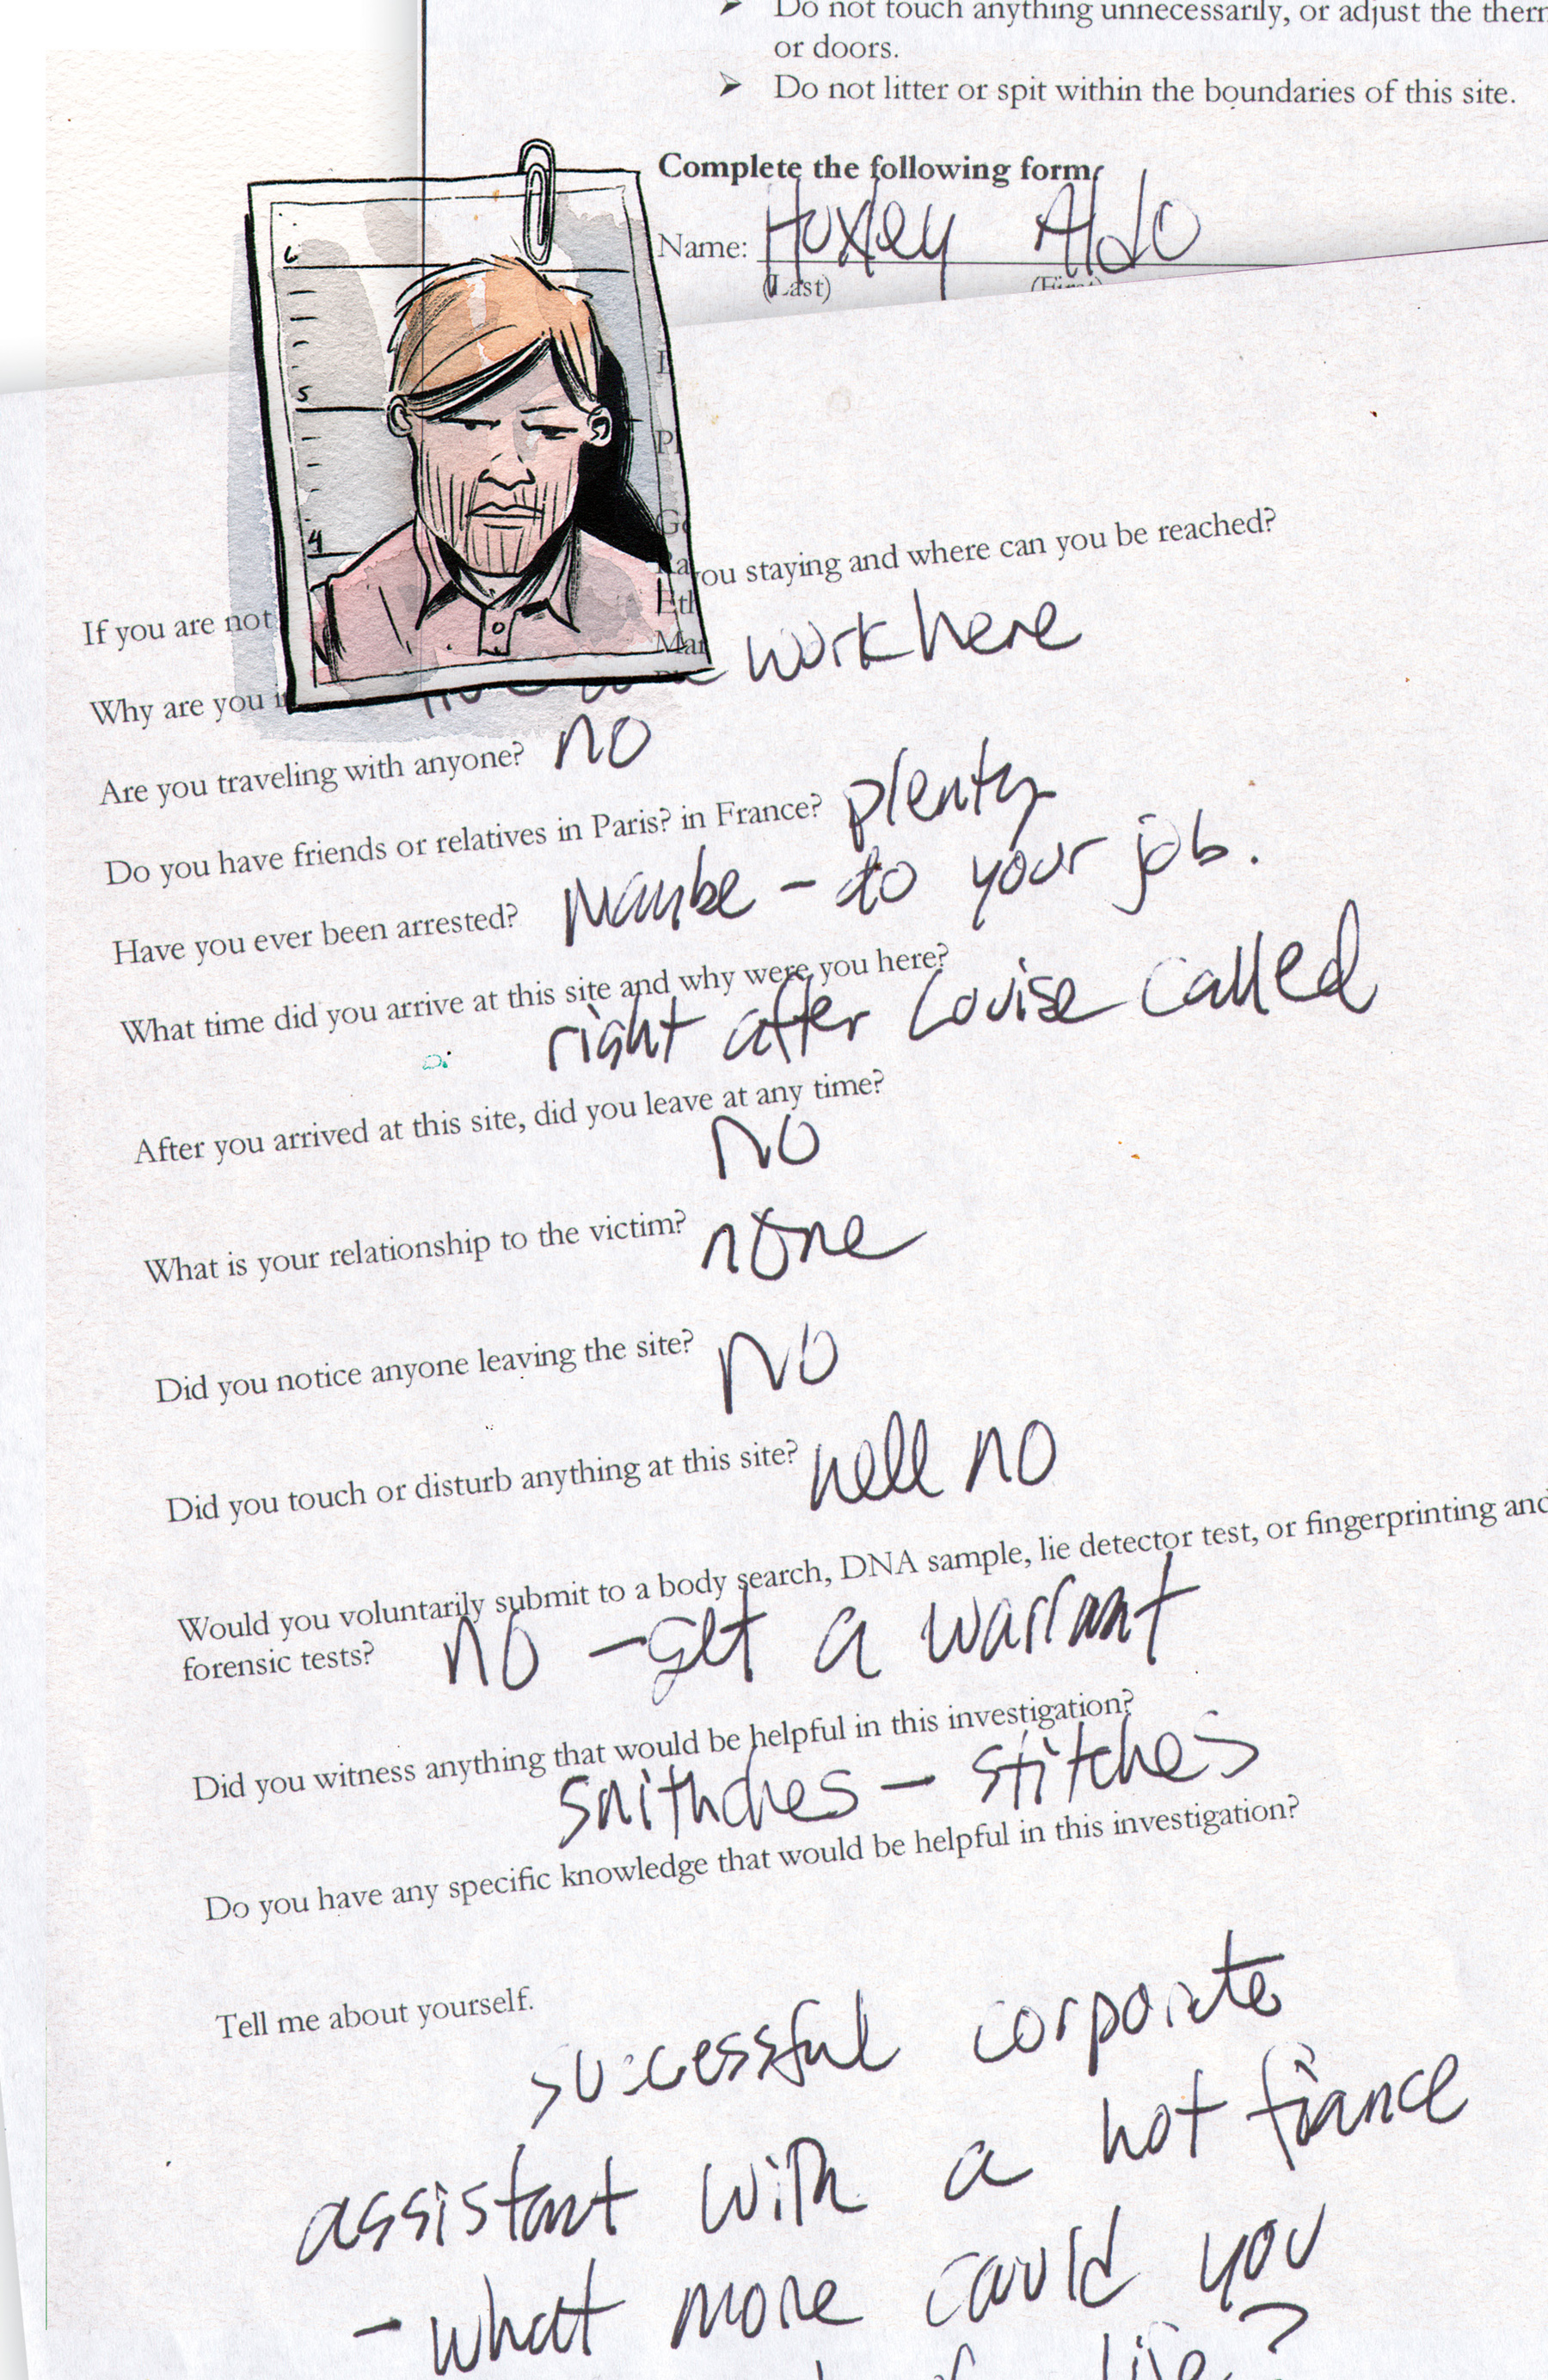 Do not touch anything unnecessarily, or adjust the
or doors.
Do not litter or spit within the boundaries of this site.
Complete the following form
Name: Huxley Aldo
(Last) (First)
6
5
4
If you are not you staying and where can you be reached?
Why are you work here
Are you traveling with anyone? no
Do you have friends or relatives in Paris? in France? plenty
Have you ever been arrested? Maybe - do your job.
What time did you arrive at this site and why were you here?
right after Louise called
After you arrived at this site, did you leave at any time?
no
What is your relationship to the victim? none
Did you notice anyone leaving the site? no
Did you touch or disturb anything at this site? hell no
Would you voluntarily submit to a body search, DNA sample, lie detector test, or fingerprinting and
forensic tests? no - get a warrant
Did you witness anything that would be helpful in this investigation?
snithches - stitches
Do you have any specific knowledge that would be helpful in this investigation?
Tell me about yourself.
successful corporate
assistant with a hot fiance
- what more could you
life?